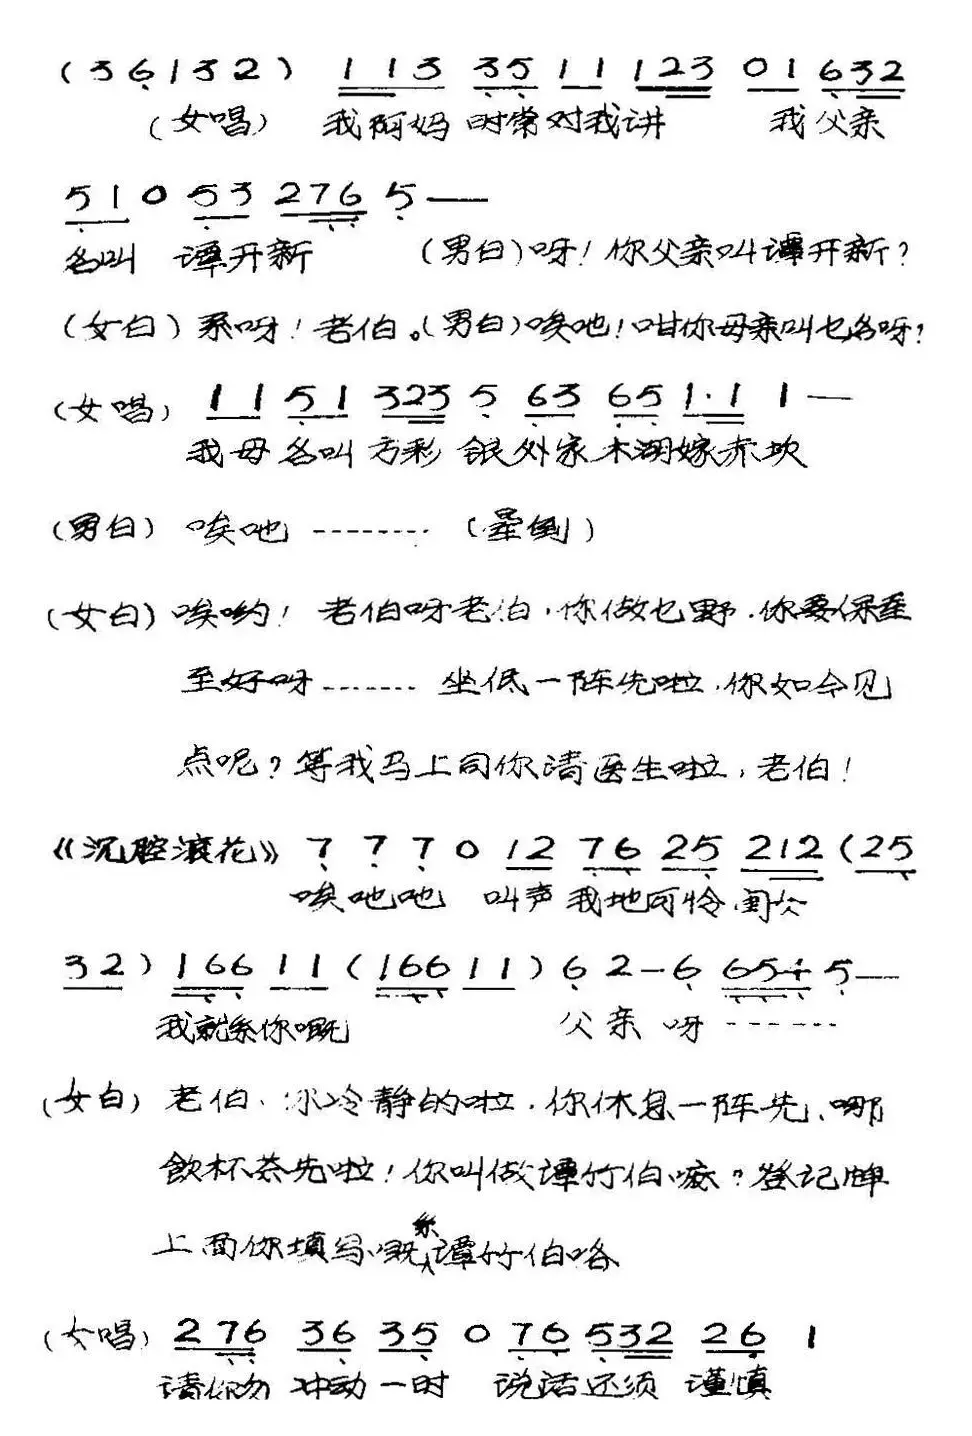 (36132) 113 35 11 123 01 632
(女唱) 我阿妈时常对我讲 我父亲
510 53 276 5—
名叫 谭开新 (男白)呀!你父亲叫谭开新?
(女白)系呀!老伯。(男白)唉吔!咁你母亲叫乜名呀?
(女唱) 11 51 323 5 63 65 1·1 1—
我母名叫方彩银外家木湖嫁赤坎
(男白) 唉吔-------- (晕倒)
(女白)唉哟! 老伯呀老伯,你做乜野.你要保重
至好呀------- 坐低一阵先啦,你如今见
点呢?等我马上同你请医生啦,老伯!
《沉腔滚花》7 7 7 0 12 76 25 212 (25
唉吔吔 叫声我地可怜闺女
32) 166 11 (166 11) 6 2-6 654 5—
我就系你嘅 父亲呀--------
(女白) 老伯、你冷静的啦.你休息一阵先、嗱
飲杯茶先啦!你叫做谭竹伯嘛?登记牌
上面你填写嘅系谭竹伯咯
(女唱) 276 36 35 0 76 532 26 1
请你勿冲动一时 说话还须谨慎